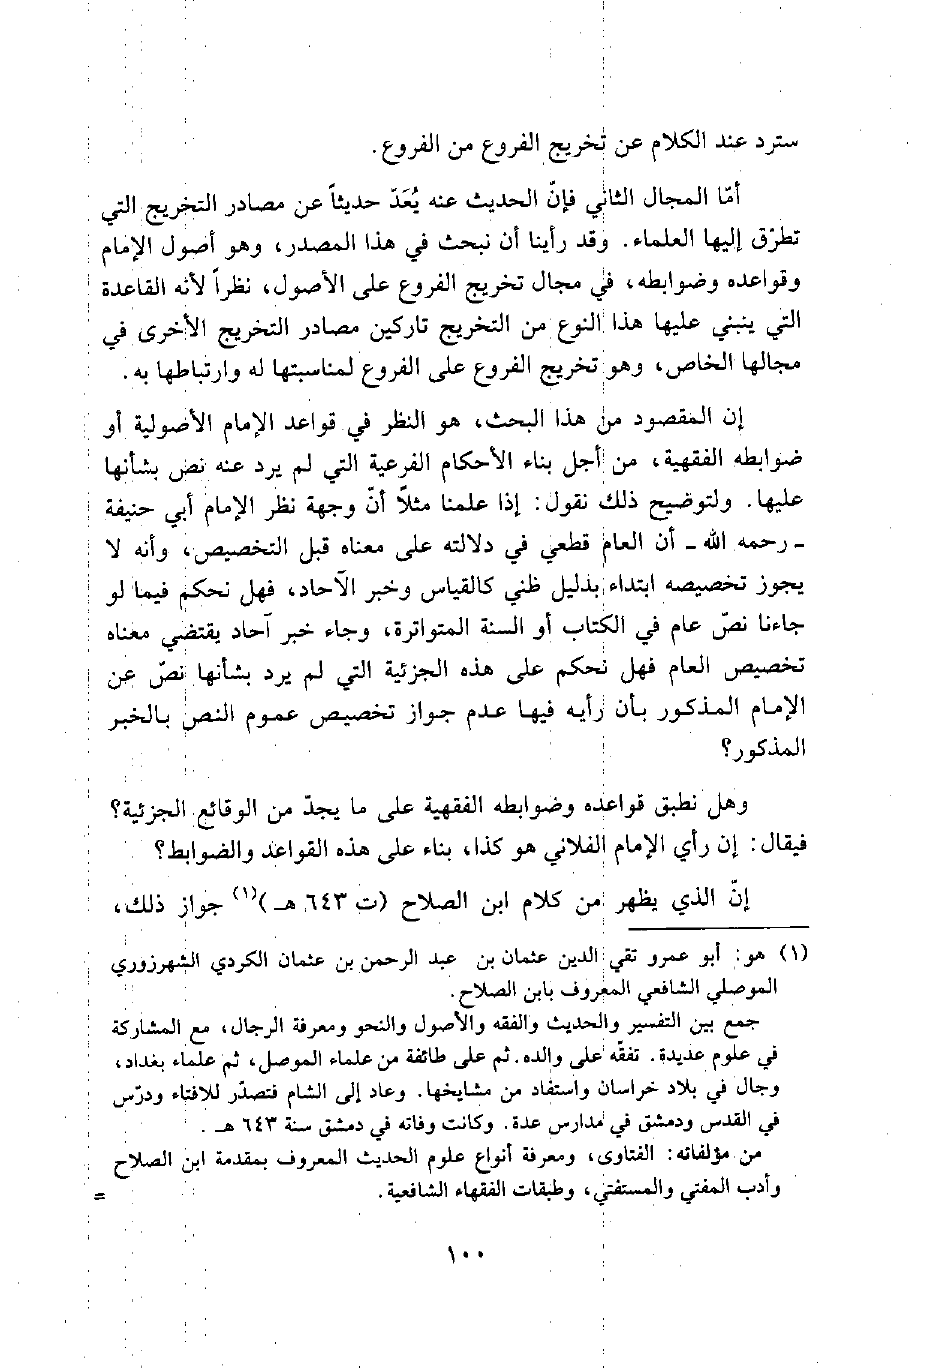 سترد عند الكلام عن تخريج الفروع من الفروع.
أمّا المجال الثاني فإنّ الحديث عنه يُعَدّ حديثاً عن مصادر التخريج التي
تطرّق إليها العلماء. وقد رأينا أن نبحث في هذا المصدر، وهو أصول الإمام
وقواعده وضوابطه، في مجال تخريج الفروع على الأصول، نظراً لأنه القاعدة
التي ينبني عليها هذا النوع من التخريج تاركين مصادر التخريج الأخرى في
مجالها الخاص، وهو تخريج الفروع على الفروع لمناسبتها له وارتباطها به.
إن المقصود من هذا البحث، هو النظر في قواعد الإمام الأصولية أو
ضوابطه الفقهية، من أجل بناء الأحكام الفرعية التي لم يرد عنه نص بشأنها
عليها. ولتوضيح ذلك نقول: إذا علمنا مثلاً أنّ وجهة نظر الإمام أبي حنيفة
ـ رحمه الله ـ أن العام قطعي في دلالته على معناه قبل التخصيص، وأنه لا
يجوز تخصيصه ابتداء بذليل ظني كالقياس وخبر الآحاد، فهل نحكم فيما لو
جاءنا نصّ عام في الكتاب أو السنة المتواترة، وجاء خبر آحاد يقتضي معناه
تخصيص العام فهل نحكم على هذه الجزئية التي لم يرد بشأنها نصّ عن
الإمام المذكور بأن رأيه فيها عدم جواز تخصيص عموم النص بالخبر
المذكور؟
وهل نطبق قواعده وضوابطه الفقهية على ما يجدّ من الوقائع الجزئية؟
فيقال: إن رأي الإمام الفلاني هو كذا، بناء على هذه القواعد والضوابط؟
إنّ الذي يظهر من كلام ابن الصلاح (ت ٦٤٣ هـ)(١) جواز ذلك،
(١) هو: أبو عمرو تقي الدين عثمان بن عبد الرحمن بن عثمان الكردي الشهرزوري
الموصلي الشافعي المعروف بابن الصلاح.
جمع بين التفسير والحديث والفقه والأصول والنحو ومعرفة الرجال، مع المشاركة
في علوم عديدة. تفقّه على والده. ثم على طائفة من علماء الموصل، ثم علماء بغداد،
وجال في بلاد خراسان واستفاد من مشايخها. وعاد إلى الشام فتصدّر للافتاء ودرّس
في القدس ودمشق في مدارس عدة. وكانت وفاته في دمشق سنة ٦٤٣ هـ .
من مؤلفاته: الفتاوى، ومعرفة أنواع علوم الحديث المعروف بمقدمة ابن الصلاح
وأدب المفتي والمستفتي، وطبقات الفقهاء الشافعية. =
١٠٠